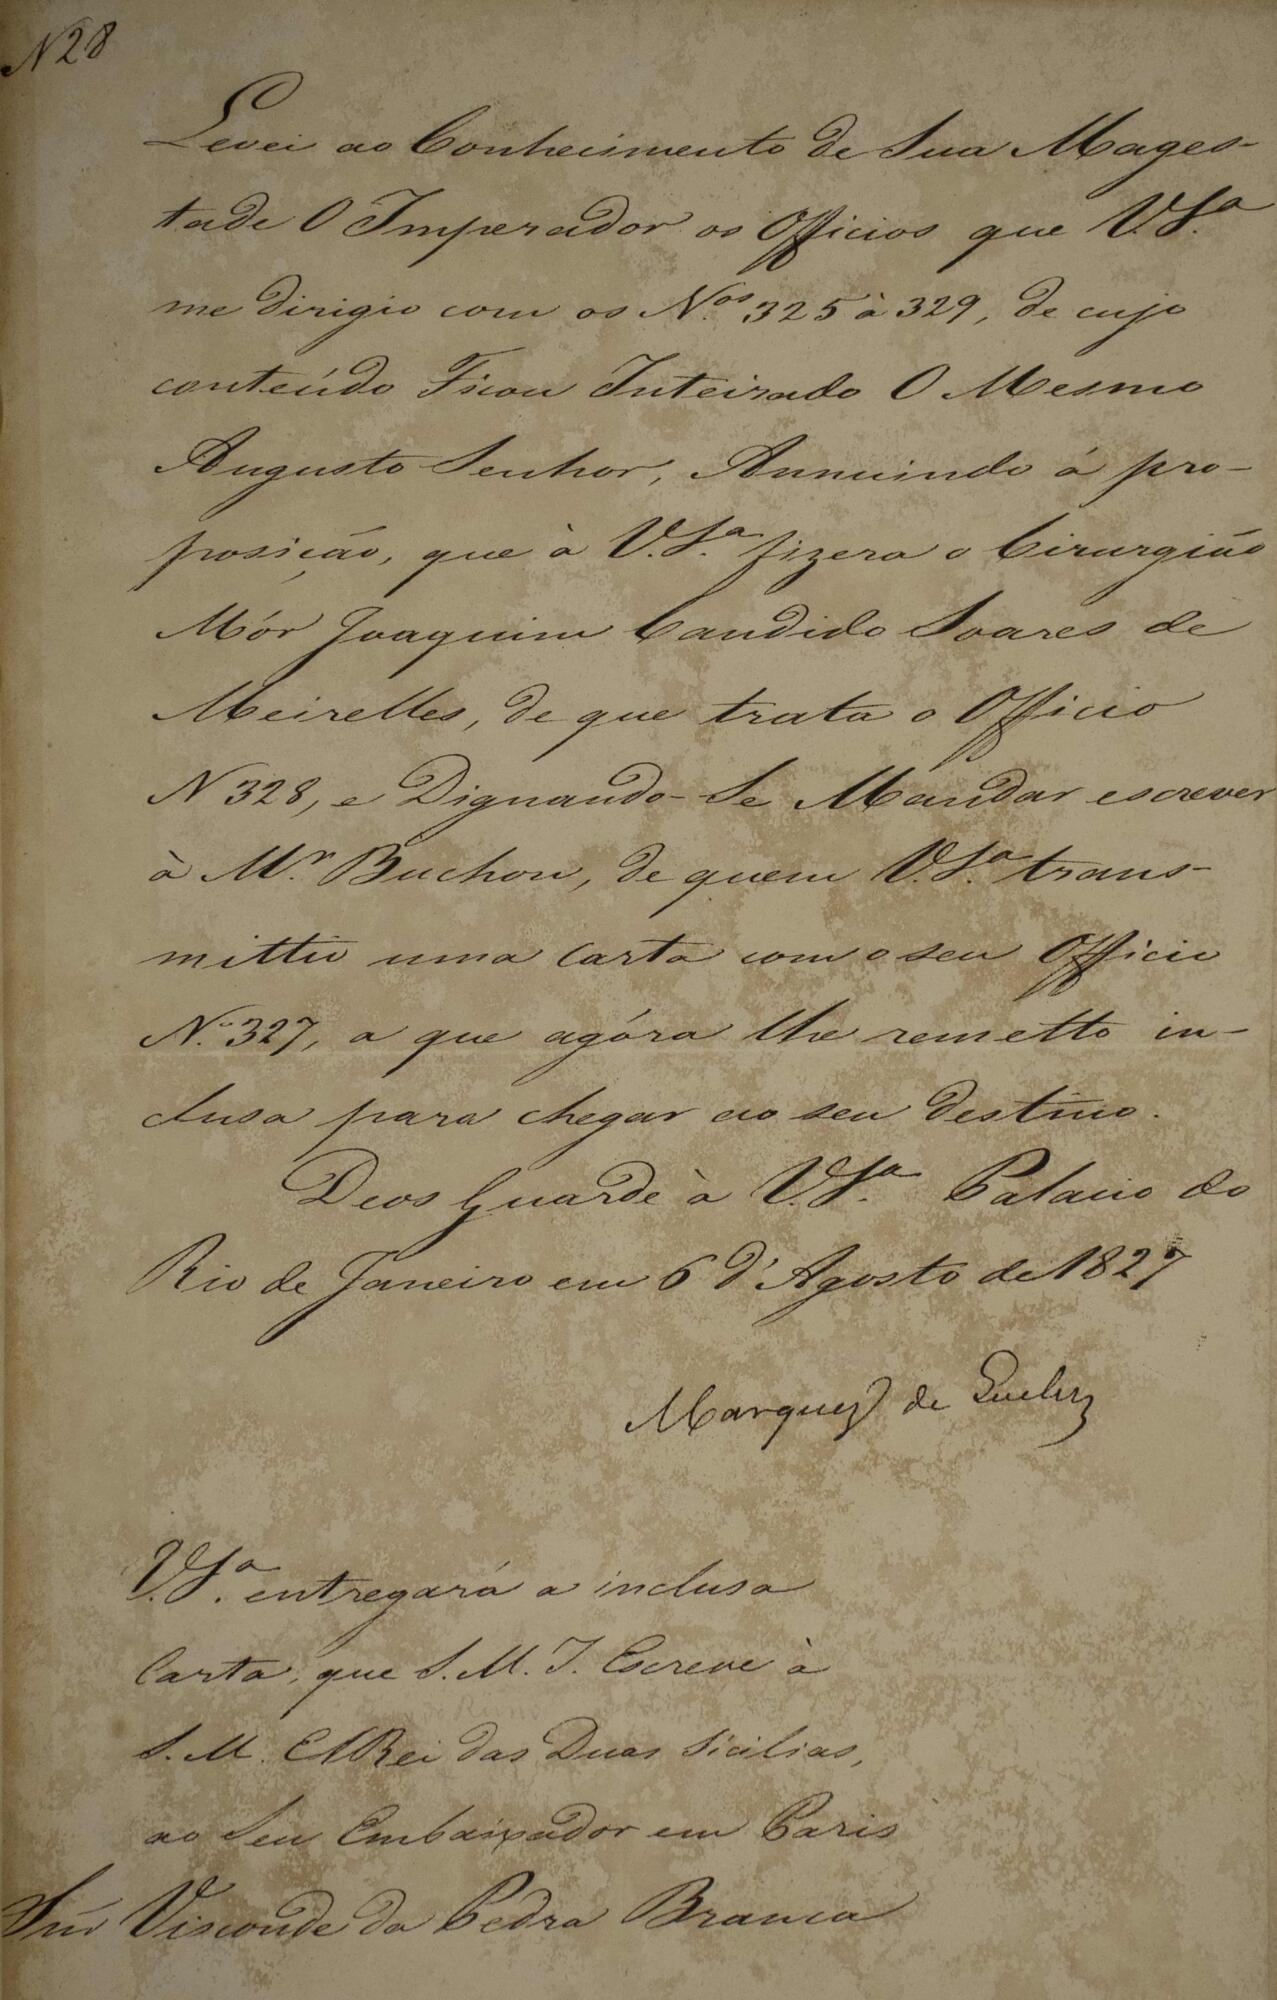 N 28
Levei ao Conhecimento de Sua Mages-
tade O Imperador os Officios que V.S.ª
me dirigio com os N.os 325 à 329, de cujo
conteúdo Ficou Inteirado O Mesmo
Augusto Senhor, Annuindo á pro-
posição, que à V.S.ª fizera o Cirurgião
Mór Joaquim Candido Soares de
Meirelles, de que trata o Officio
N 328, e Dignando-Se Mandar escrever
à M.r Buchon, de quem V.S.ª trans-
mittio uma carta com o seu Officio
N.º 327, a que agóra lhe remetto in-
clusa para chegar ao seu destino.
Deos Guarde à V.S.ª Palacio do
Rio de Janeiro em 6 d'Agosto de 1827
Marquez de Queluz
V.S.ª entregará a inclusa
Carta, que S. M. I. Escreve à
S. M. ElRei das Duas Sicilias,
ao Seu Embaixador em Paris
Snr Visconde da Pedra Branca